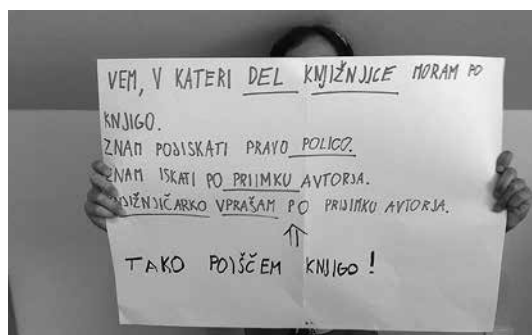 VEM, V KATERI DEL KNJIŽNJICE MORAM PO
KNJIGO.
ZNAM POJISKATI PRAVO POLICO.
ZNAM ISKATI PO PRIIMKU AVTORJA.
KNJIŽNJIČARKO VPRAŠAM PO PRIJIMKU AVTORJA.
TAKO POIŠČEM KNJIGO!